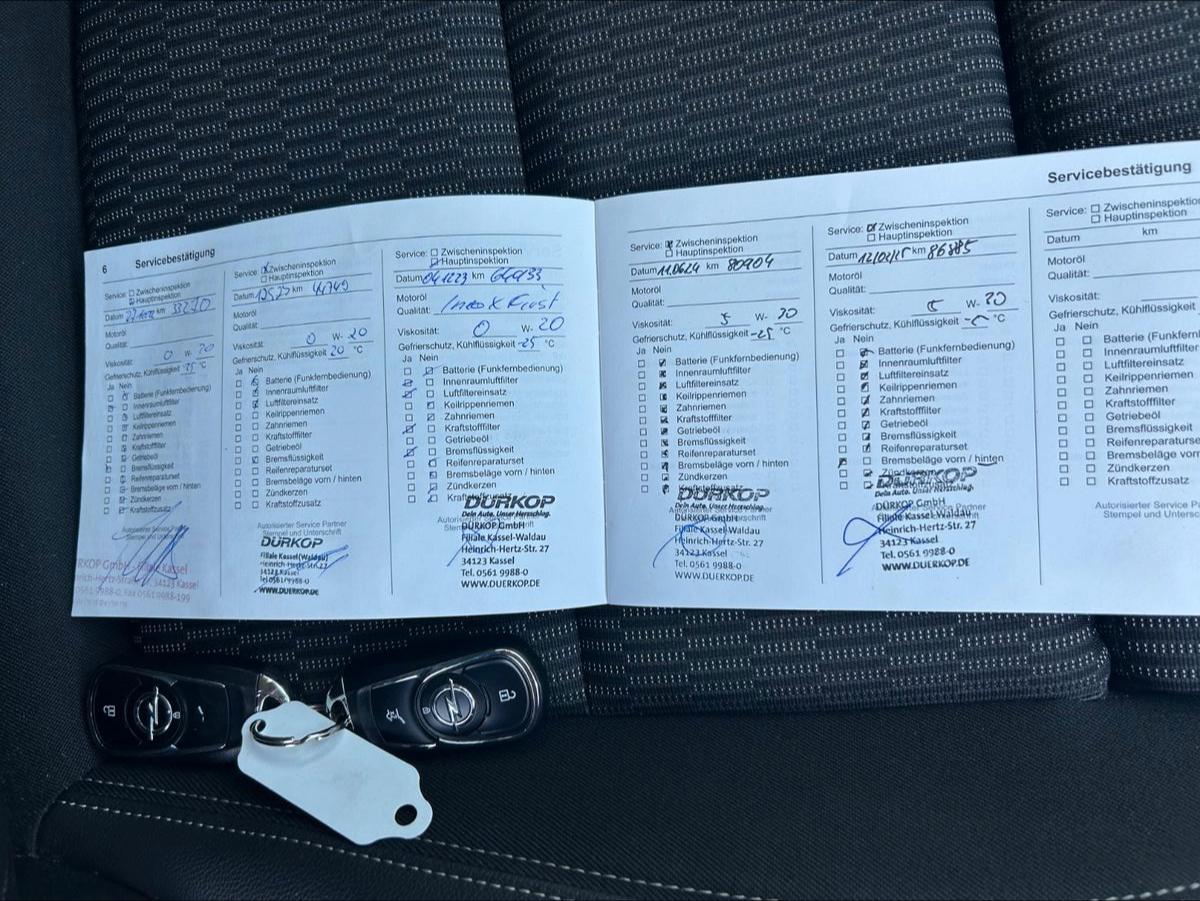 6 Servicebestätigung
Service: Zwischeninspektion
Hauptinspektion
Datum km 33270
Motoröl
Qualität:
Viskosität: 0 W- 20
Gefrierschutz, Kühlflüssigkeit °C
Ja Nein
Batterie (Funkfernbedienung)
Innenraumluftfilter
Luftfiltereinsatz
Keilrippenriemen
Zahnriemen
Kraftstofffilter
Getriebeöl
Bremsflüssigkeit
Reifenreparaturset
Bremsbeläge vorn / hinten
Zündkerzen
Kraftstoffzusatz
Autorisierter Service Partner
Stempel und Unterschrift
RKOP GmbH - Filiale Kassel
nrich-Hertz-Straße 34123 Kassel
0561 9988-0, Fax 0561 9988-199
Service: Zwischeninspektion
Hauptinspektion
Datum km
Motoröl
Qualität:
Viskosität: 0 W- 20
Gefrierschutz, Kühlflüssigkeit 20 °C
Ja Nein
Batterie (Funkfernbedienung)
Innenraumluftfilter
Luftfiltereinsatz
Keilrippenriemen
Zahnriemen
Kraftstofffilter
Getriebeöl
Bremsflüssigkeit
Reifenreparaturset
Bremsbeläge vorn / hinten
Zündkerzen
Kraftstoffzusatz
Autorisierter Service Partner
Stempel und Unterschrift
DÜRKOP
Filiale Kassel(Waldau)
Heinrich-Hertz-Str. 27
34123 Kassel
Tel. 0561/9988-0
WWW.DUERKOP.DE
Service: Zwischeninspektion
Hauptinspektion
Datum 041223 km
Motoröl
Qualität:
Viskosität: 0 W- 20
Gefrierschutz, Kühlflüssigkeit -25 °C
Ja Nein
Batterie (Funkfernbedienung)
Innenraumluftfilter
Luftfiltereinsatz
Keilrippenriemen
Zahnriemen
Kraftstofffilter
Getriebeöl
Bremsflüssigkeit
Reifenreparaturset
Bremsbeläge vorn / hinten
Zündkerzen
Kraftstoffzusatz
DÜRKOP
Dein Auto. Unser Herzschlag.
DÜRKOP GmbH
Filiale Kassel-Waldau
Heinrich-Hertz-Str. 27
34123 Kassel
Tel. 0561 9988-0
WWW.DUERKOP.DE
Service: Zwischeninspektion
Hauptinspektion
Datum 11.06.24 km 80904
Motoröl
Qualität:
Viskosität: 5 W- 20
Gefrierschutz, Kühlflüssigkeit -25 °C
Ja Nein
Batterie (Funkfernbedienung)
Innenraumluftfilter
Luftfiltereinsatz
Keilrippenriemen
Zahnriemen
Kraftstofffilter
Getriebeöl
Bremsflüssigkeit
Reifenreparaturset
Bremsbeläge vorn / hinten
Zündkerzen
Kraftstoffzusatz
DÜRKOP
Dein Auto. Unser Herzschlag.
DÜRKOP GmbH
Filiale Kassel-Waldau
Heinrich-Hertz-Str. 27
34123 Kassel
Tel. 0561 9988-0
WWW.DUERKOP.DE
Service: Zwischeninspektion
Hauptinspektion
Datum km 86885
Motoröl
Qualität:
Viskosität: 5 W- 20
Gefrierschutz, Kühlflüssigkeit °C
Ja Nein
Batterie (Funkfernbedienung)
Innenraumluftfilter
Luftfiltereinsatz
Keilrippenriemen
Zahnriemen
Kraftstofffilter
Getriebeöl
Bremsflüssigkeit
Reifenreparaturset
Bremsbeläge vorn / hinten
Zündkerzen
DÜRKOP
Dein Auto. Unser Herzschlag.
DÜRKOP GmbH
Filiale Kassel-Waldau
Heinrich-Hertz-Str. 27
34123 Kassel
Tel. 0561 9988-0
WWW.DUERKOP.DE
Servicebestätigung
Service: Zwischeninspektio
Hauptinspektion
Datum km
Motoröl
Qualität:
Viskosität:
Gefrierschutz, Kühlflüssigkeit
Ja Nein
Batterie (Funkfernl
Innenraumluftfilter
Luftfiltereinsatz
Keilrippenriemen
Zahnriemen
Kraftstofffilter
Getriebeöl
Bremsflüssigkeit
Reifenreparaturse
Bremsbeläge vorn
Zündkerzen
Kraftstoffzusatz
Autorisierter Service Pa
Stempel und Untersc